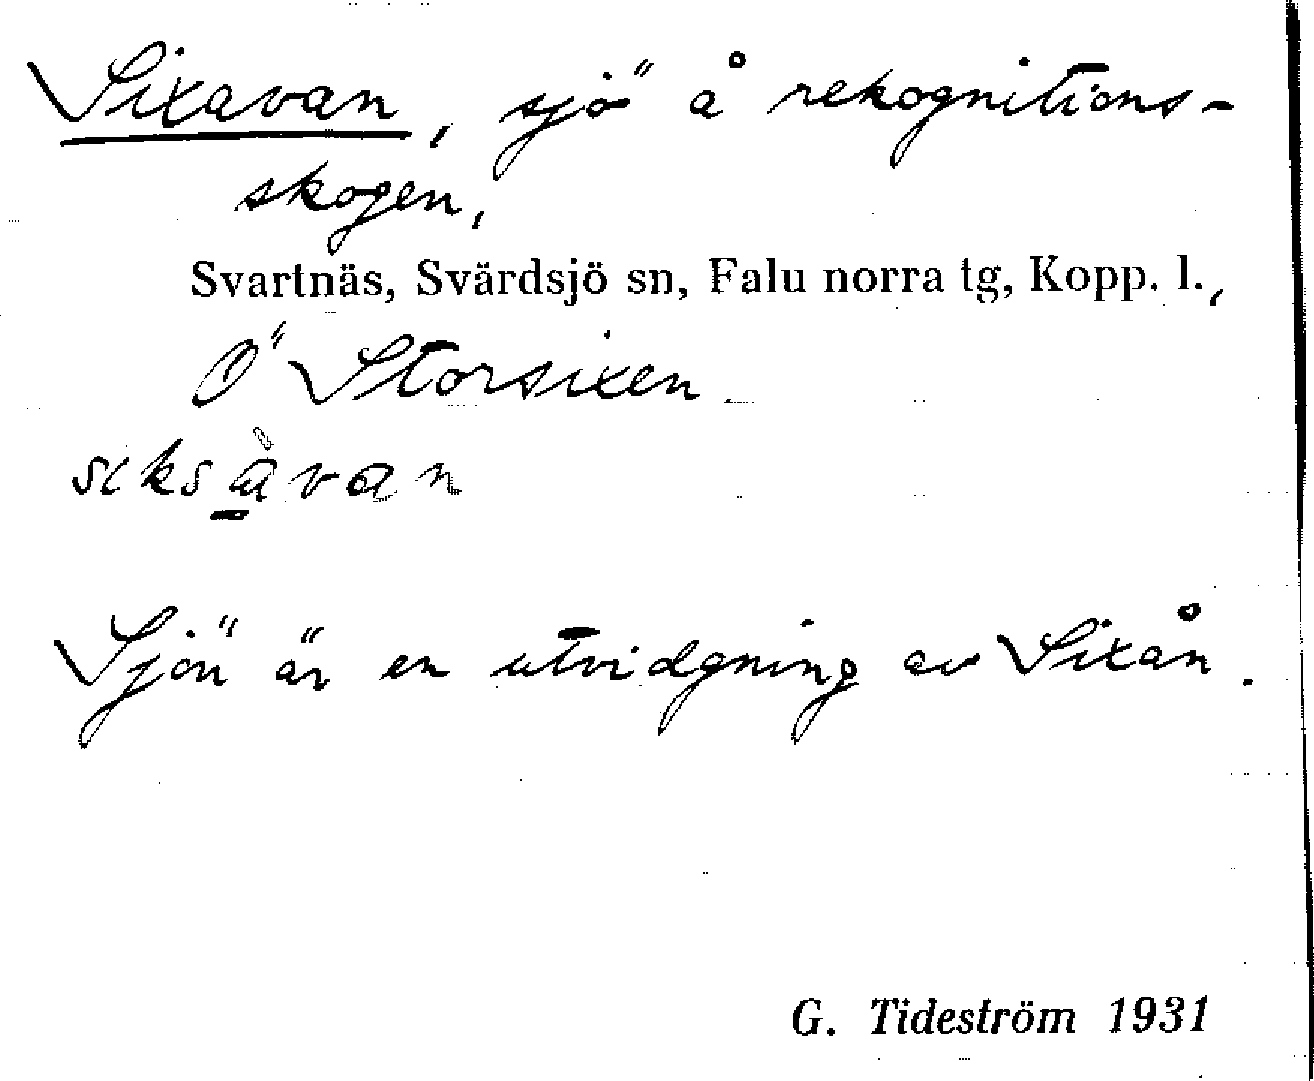 Sixavan, sjö å rekognitions-
skogen,
Svartnäs, Svärdsjö sn, Falu norra tg, Kopp. l.,
Ö Storsixen
siksàvan
Sjön är en utvidgning av Sixån.
G. Tideström 1931